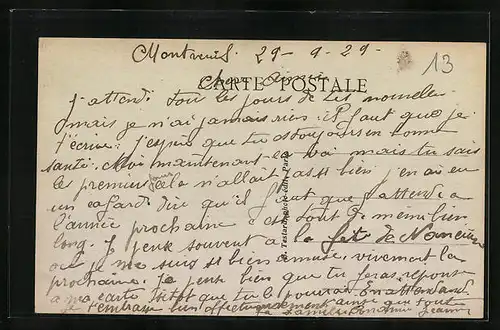 Montreuil. 29-9-29-
13
CARTE POSTALE
Cher
J'attends tous les jours de tes nouvelles
mais je n'ai jamais rien il faut que je
t'écrive. J'espère que tu es toujours en bonne
santé. Moi maintenant va mais tu sais
les premiers jours cela n'allait pas si bien j'en ai eu
un cafard dire qu'il faut que j'attende a
l'année prochaine c'est tout de même bien
long. Je pense souvent à la fête de
où je me suis si bien amusée, vivement la
prochaine. Je pense bien que tu feras réponse
a ma carte sitôt que tu le pourras. En attendant
je t'embrasse bien affectueusement ainsi que toute
ta famille Jeanne